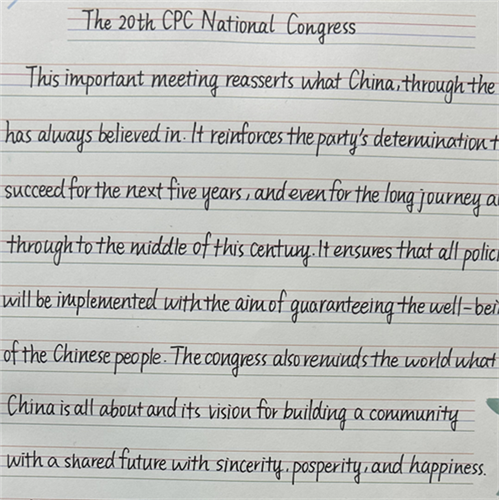 The 20th CPC National Congress
This important meeting reasserts what China, through the
has always believed in. It reinforces the party's determination t
succeed for the next five years, and even for the long journey a
through to the middle of this century. It ensures that all polic
will be implemented with the aim of guaranteeing the well-bei
of the Chinese people. The congress also reminds the world what
China is all about and its vision for building a community
with a shared future with sincerity, posperity, and happiness.